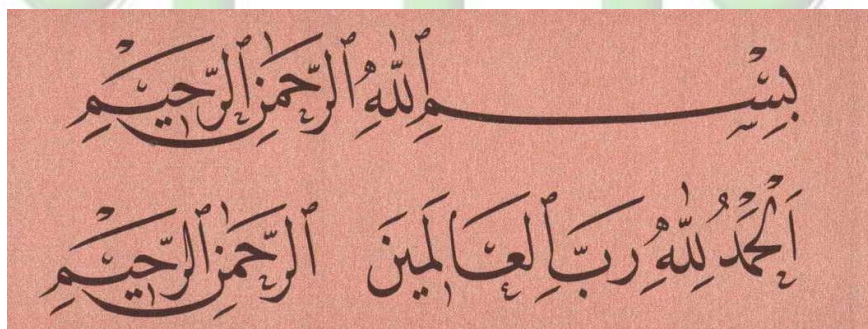 بِسْمِ ٱللّٰهِ ٱلرَّحْمٰنِ ٱلرَّحِيْمِ
اَلْحَمْدُ لِلّٰهِ رَبِّ ٱلْعَالَمِينَ ٱلرَّحْمٰنِ ٱلرَّحِيْمِ